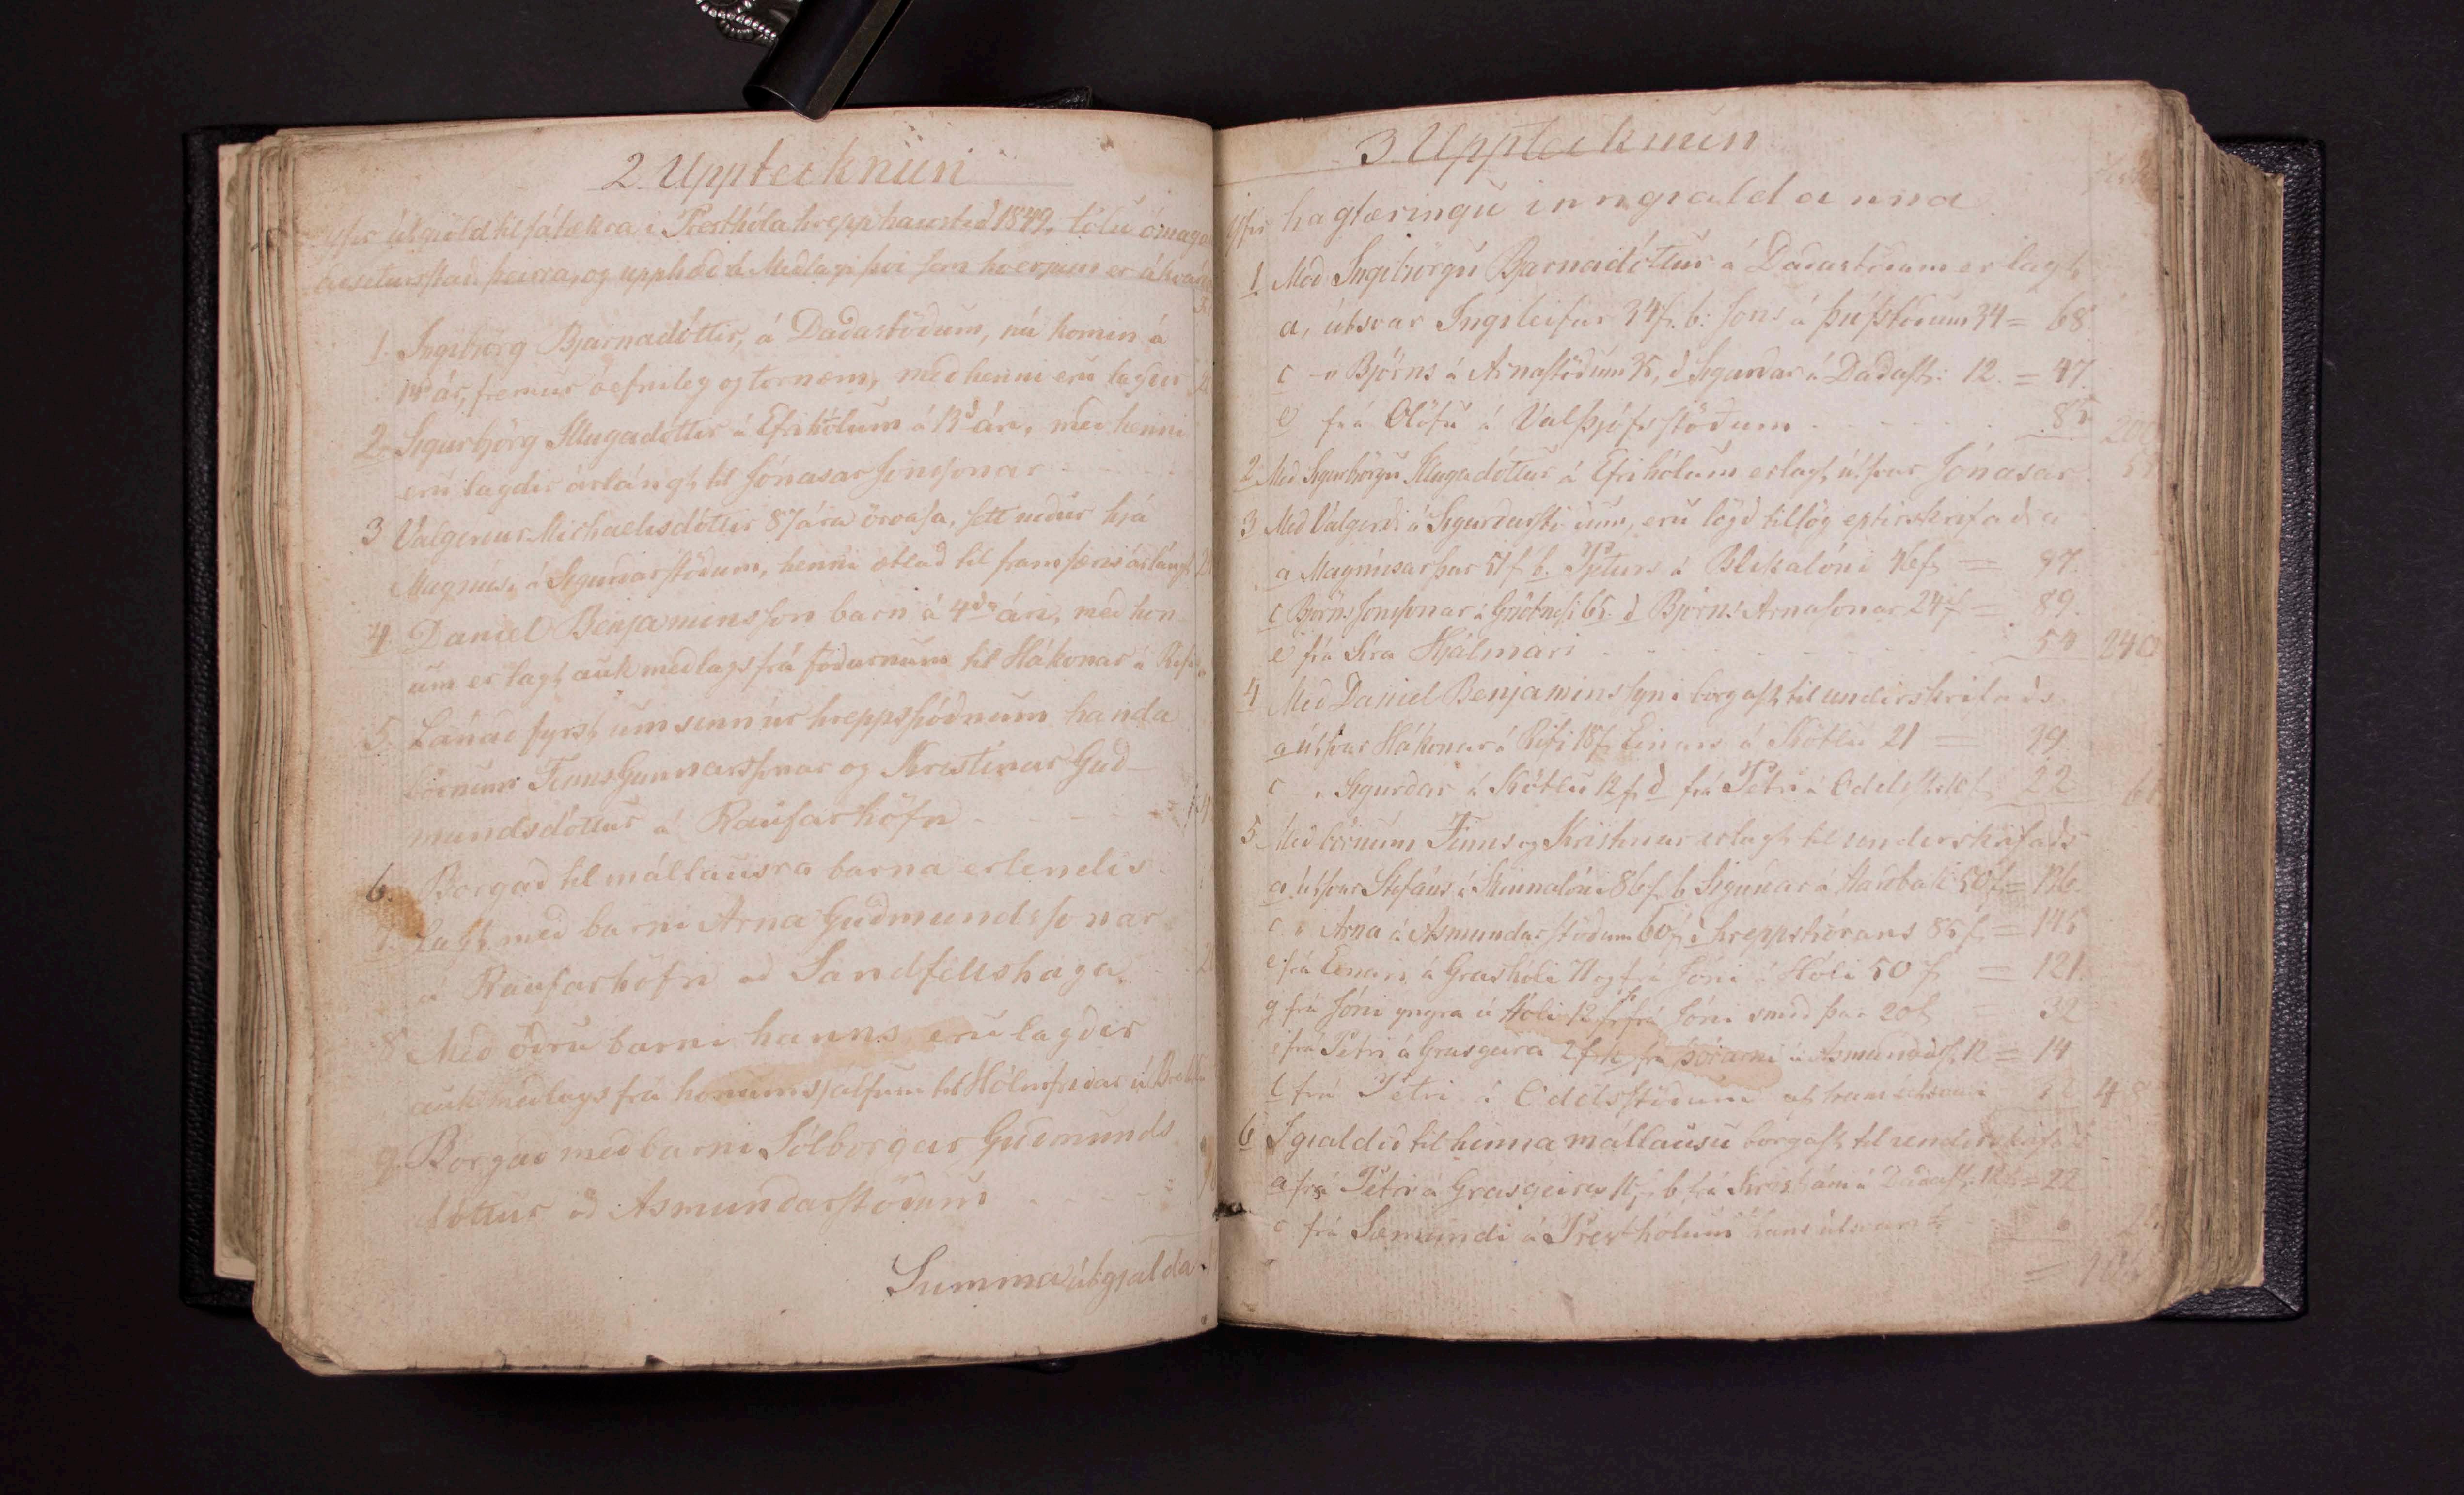 2. Uppteiknun
yfir útgiöld til fátækra i Presthóla hrepp haustið 1849, tölu ómaga
aðsetursstað þeirra, og upphæð á Meðlagi því sem hverjum er ákvarð
1. Ingibjörg Bjarnadóttir, á Daðastöðum, nú komin á
14da ár, fremur óefnileg og tornæm, með henni eru lagðir
2. Sigurbjörg Illugadóttir á Efrihólum á 13da ári, með henni
eru lagdir árlángt til Jónasar Jónssonar
3 Valgerður Michaelisdóttir 87 ára örvasa, sett niður hjá
Magnúsi á Sigurðarstöðum, henni ætlað til framfæris árlángt
4. Daniel Benjaminsson barn á 4da ári, með hon
um er lagt auk meðlags frá föðurnum til Hákonar á Rifi
5. Lánað fyrst um sinn úr hreppssjóðnum handa
börnum Finns Gunnarssonar og Kristínar Guð-
mundsdóttur á Raufarhöfn
6. Borgað til mállausra barna erlendis
7. Lagt með barni Arna Guðmundssonar
á Raufarhöfn að Sandfellshaga
8 Með öðru barni hanns eru lagðir
auk meðlags frá honum sjálfum til Hólmfríðar á
9. Borgað með barni Sólborgar Guðmunds
dóttur að Asmundarstöðum
Summa útgjalda
3 Uppteiknun
yfir hagfæringu inngialdanna
1 Með Ingibjörgu Bjarnadóttur á Daðastöðum er lagt
a, útsvar Ingileifar 34f. b: Jóns á Þúfstöðum 34 = 68.
c -" Björns á Arnastöðum 35, d Sigurðar á Daðast: 12. = 47.
e frá Olöfu á Valþjófsstöðum 85 200
2 Með Sigurbjörgu Illugadóttur á Efrihólum er lagt útsvar Jónasar
3 Með Valgerði á Sigurðarstöðum, eru lögð tillög eptirskrifað a
a Magnúsar þar 51f b. Péturs á Blikalóni 46f = 97.
c Björns Jónssonar á Grjótnesi 65. d Björns Arnasonar 24f = 89.
e frá Síra Hjálmari 54 240
4 Með Daniel Benjaminssyni borgast til underskrifaðs
a útsvar Hákonar á Rifi 18f, Einars á Skötlu 21 = 39
c " Sigurðar á Skötlu 12 f. d frá Pétri á Oddsst. 10f 22 61
5 Með börnum Finns og Kristínar er lagt til underskrifaðs
a. útsvar Stefáns á Skinnalóni 86f b Sigurðar á Harðbak 50f = 136.
c " Arna á Asmundarstöðum 60f. d hreppstjórans 85 f. = 145
e frá Einari á Grashóli 71 og frá Jóni á Hóli 50 f. = 121.
g frá Jóni yngra á Hóli 12 f. frá Jóni smið þar 20f 32
i frá Pétri á Grasgeira 2f k frá Þórarni á Asmundarst. 12 = 14
l frá Pétri á Oddsstöðum af hans útsvari
6 I gialdið til hinna mállausu borgast til underskrifaðs
a frá Pétri á Grasgeira 10f. b frá Kristjáni á Daðast. 12f. = 22
c frá Sæmundi á Presthólum hans útsvar 6